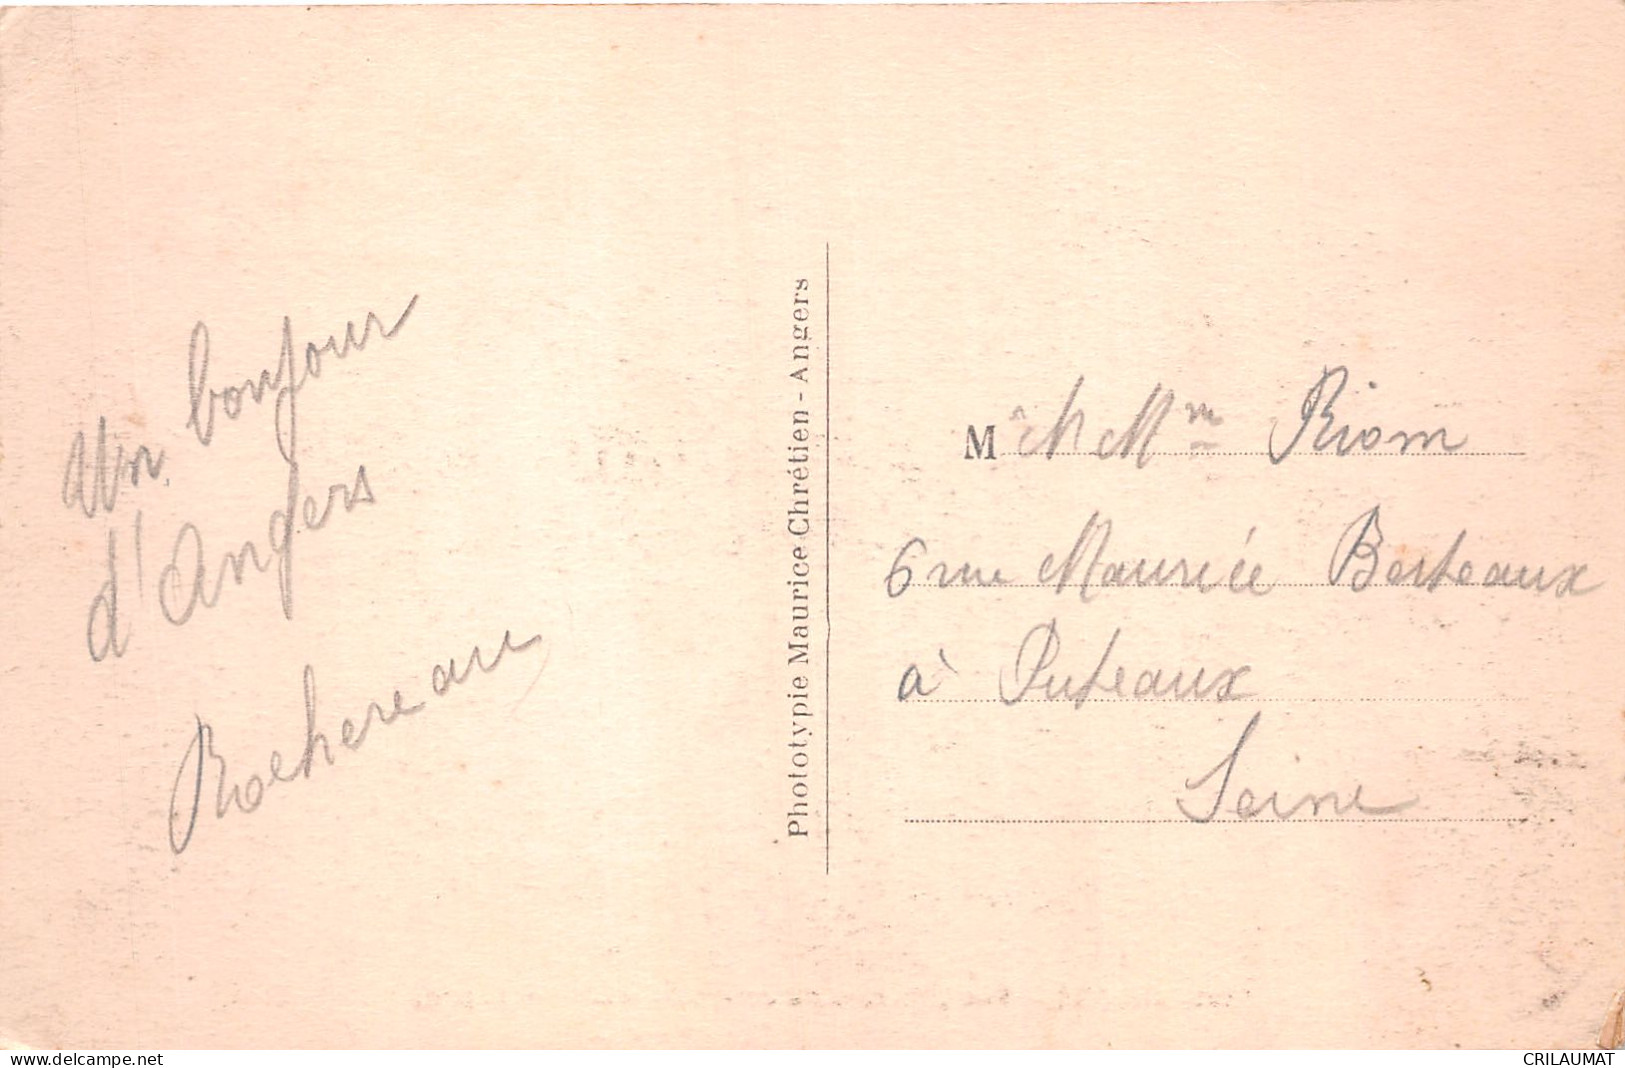 Un bonjour
d'Angers
Rochereau
Phototypie Maurice Chrétien - Angers
M M Mme Riom
6 rue Mauricée Berteaux
à Puteaux
Seine
www.delcampe.net
CRILAUMAT